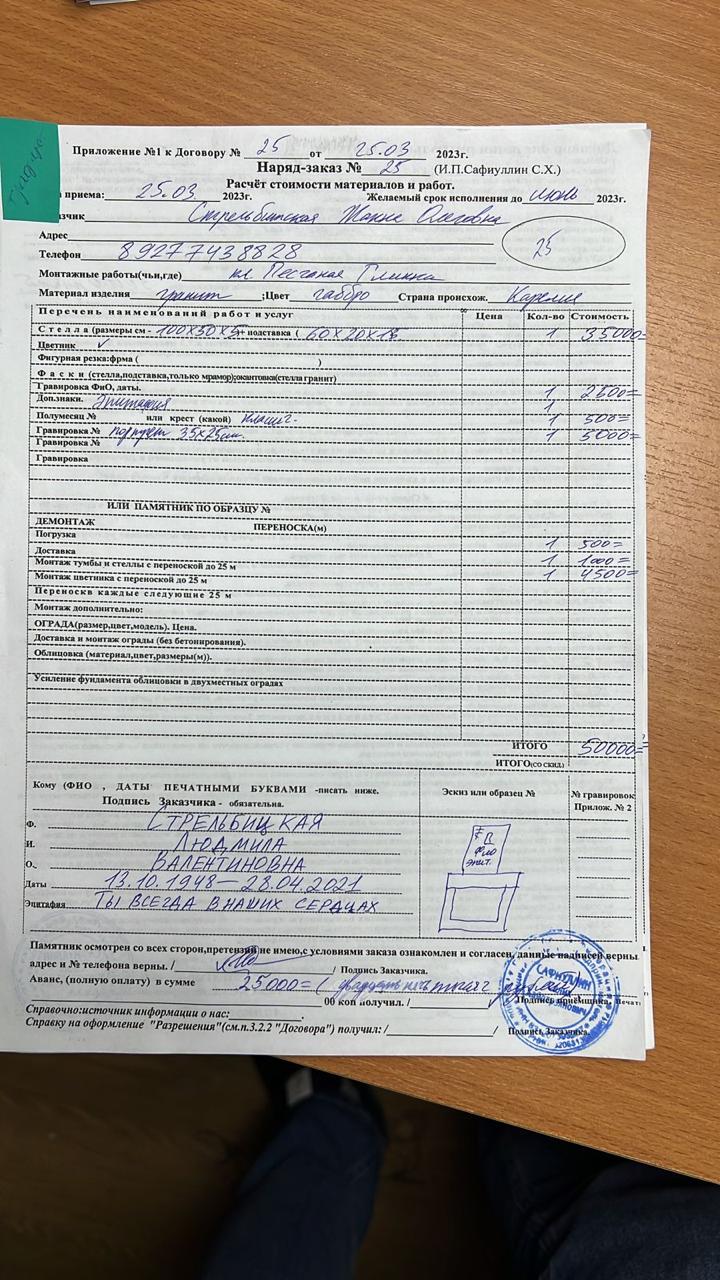 Приложение №1 к Договору № 25 от 25.03 2023г.
Наряд-заказ № 25 (И.П.Сафиуллин С.Х.)
Расчёт стоимости материалов и работ.
приема: 25.03. 2023г. Желаемый срок исполнения до июль 2023г.
азчик Стрельбитская Жанна Олеговна
25
Адрес
Телефон 89277438828
Монтажные работы(чьи,где) кл Песчаная Глинка
Материал изделия гранит ;Цвет габбро Страна происхож. Карелия
Перечень наименований работ и услуг Цена Кол-во Стоимость
Стелла (размеры см - 100х50х5 + подставка ( 60х20х15 1 35000=
Цветник ✓
Фигурная резка:фрма ( )
Фаски (стелла,подставка,только мрамор);окантовка(стелла гранит)
Гравировка ФиО, даты. 1 2500=
Доп.знаки. Эпитафия 1
Полумесяц № или крест (какой) класич- 1 500=
Гравировка № портрет 35х25см. 1 5000=
Гравировка №
Гравировка
ИЛИ ПАМЯТНИК ПО ОБРАЗЦУ №
ДЕМОНТАЖ ПЕРЕНОСКА(м)
Погрузка 1 500=
Доставка 1 1000=
Монтаж тумбы и стеллы с переноской до 25 м 1 4500=
Монтаж цветника с переноской до 25 м
Переноскв каждые следующие 25 м
Монтаж дополнительно:
ОГРАДА(размер,цвет,модель). Цена.
Доставка и монтаж ограды (без бетонирования).
Облицовка (материал,цвет,размеры(м)).
Усиление фундамента облицовки в двухместных оградах
ИТОГО 50000=
ИТОГО(со скид.)
Кому (ФИО , ДАТЫ ПЕЧАТНЫМИ БУКВАМИ -писать ниже. Эскиз или образец № № гравировок
Подпись Заказчика - обязательна. Прилож. № 2
Ф. СТРЕЛЬБИЦКАЯ
И. ЛЮДМИЛА
О. ВАЛЕНТИНОВНА
Даты 13.10.1948 — 28.04.2021
Эпитафия ТЫ ВСЕГДА В НАШИХ СЕРДЦАХ
ФИО
эпит.
Памятник осмотрен со всех сторон,претензий не имею,с условиями заказа ознакомлен и согласен, данные надписей верны
адрес и № телефона верны. / / Подпись Заказчика.
Аванс, (полную оплату) в сумме 25000= (двадцать пять тысяч рублей)
00 коп получил. / / Подпись приёмщика, Печать
Справочно:источник информации о нас:
Справку на оформление "Разрешения"(см.п.3.2.2 "Договора") получил: / / Подпись Заказчика.
САФИУЛЛИН